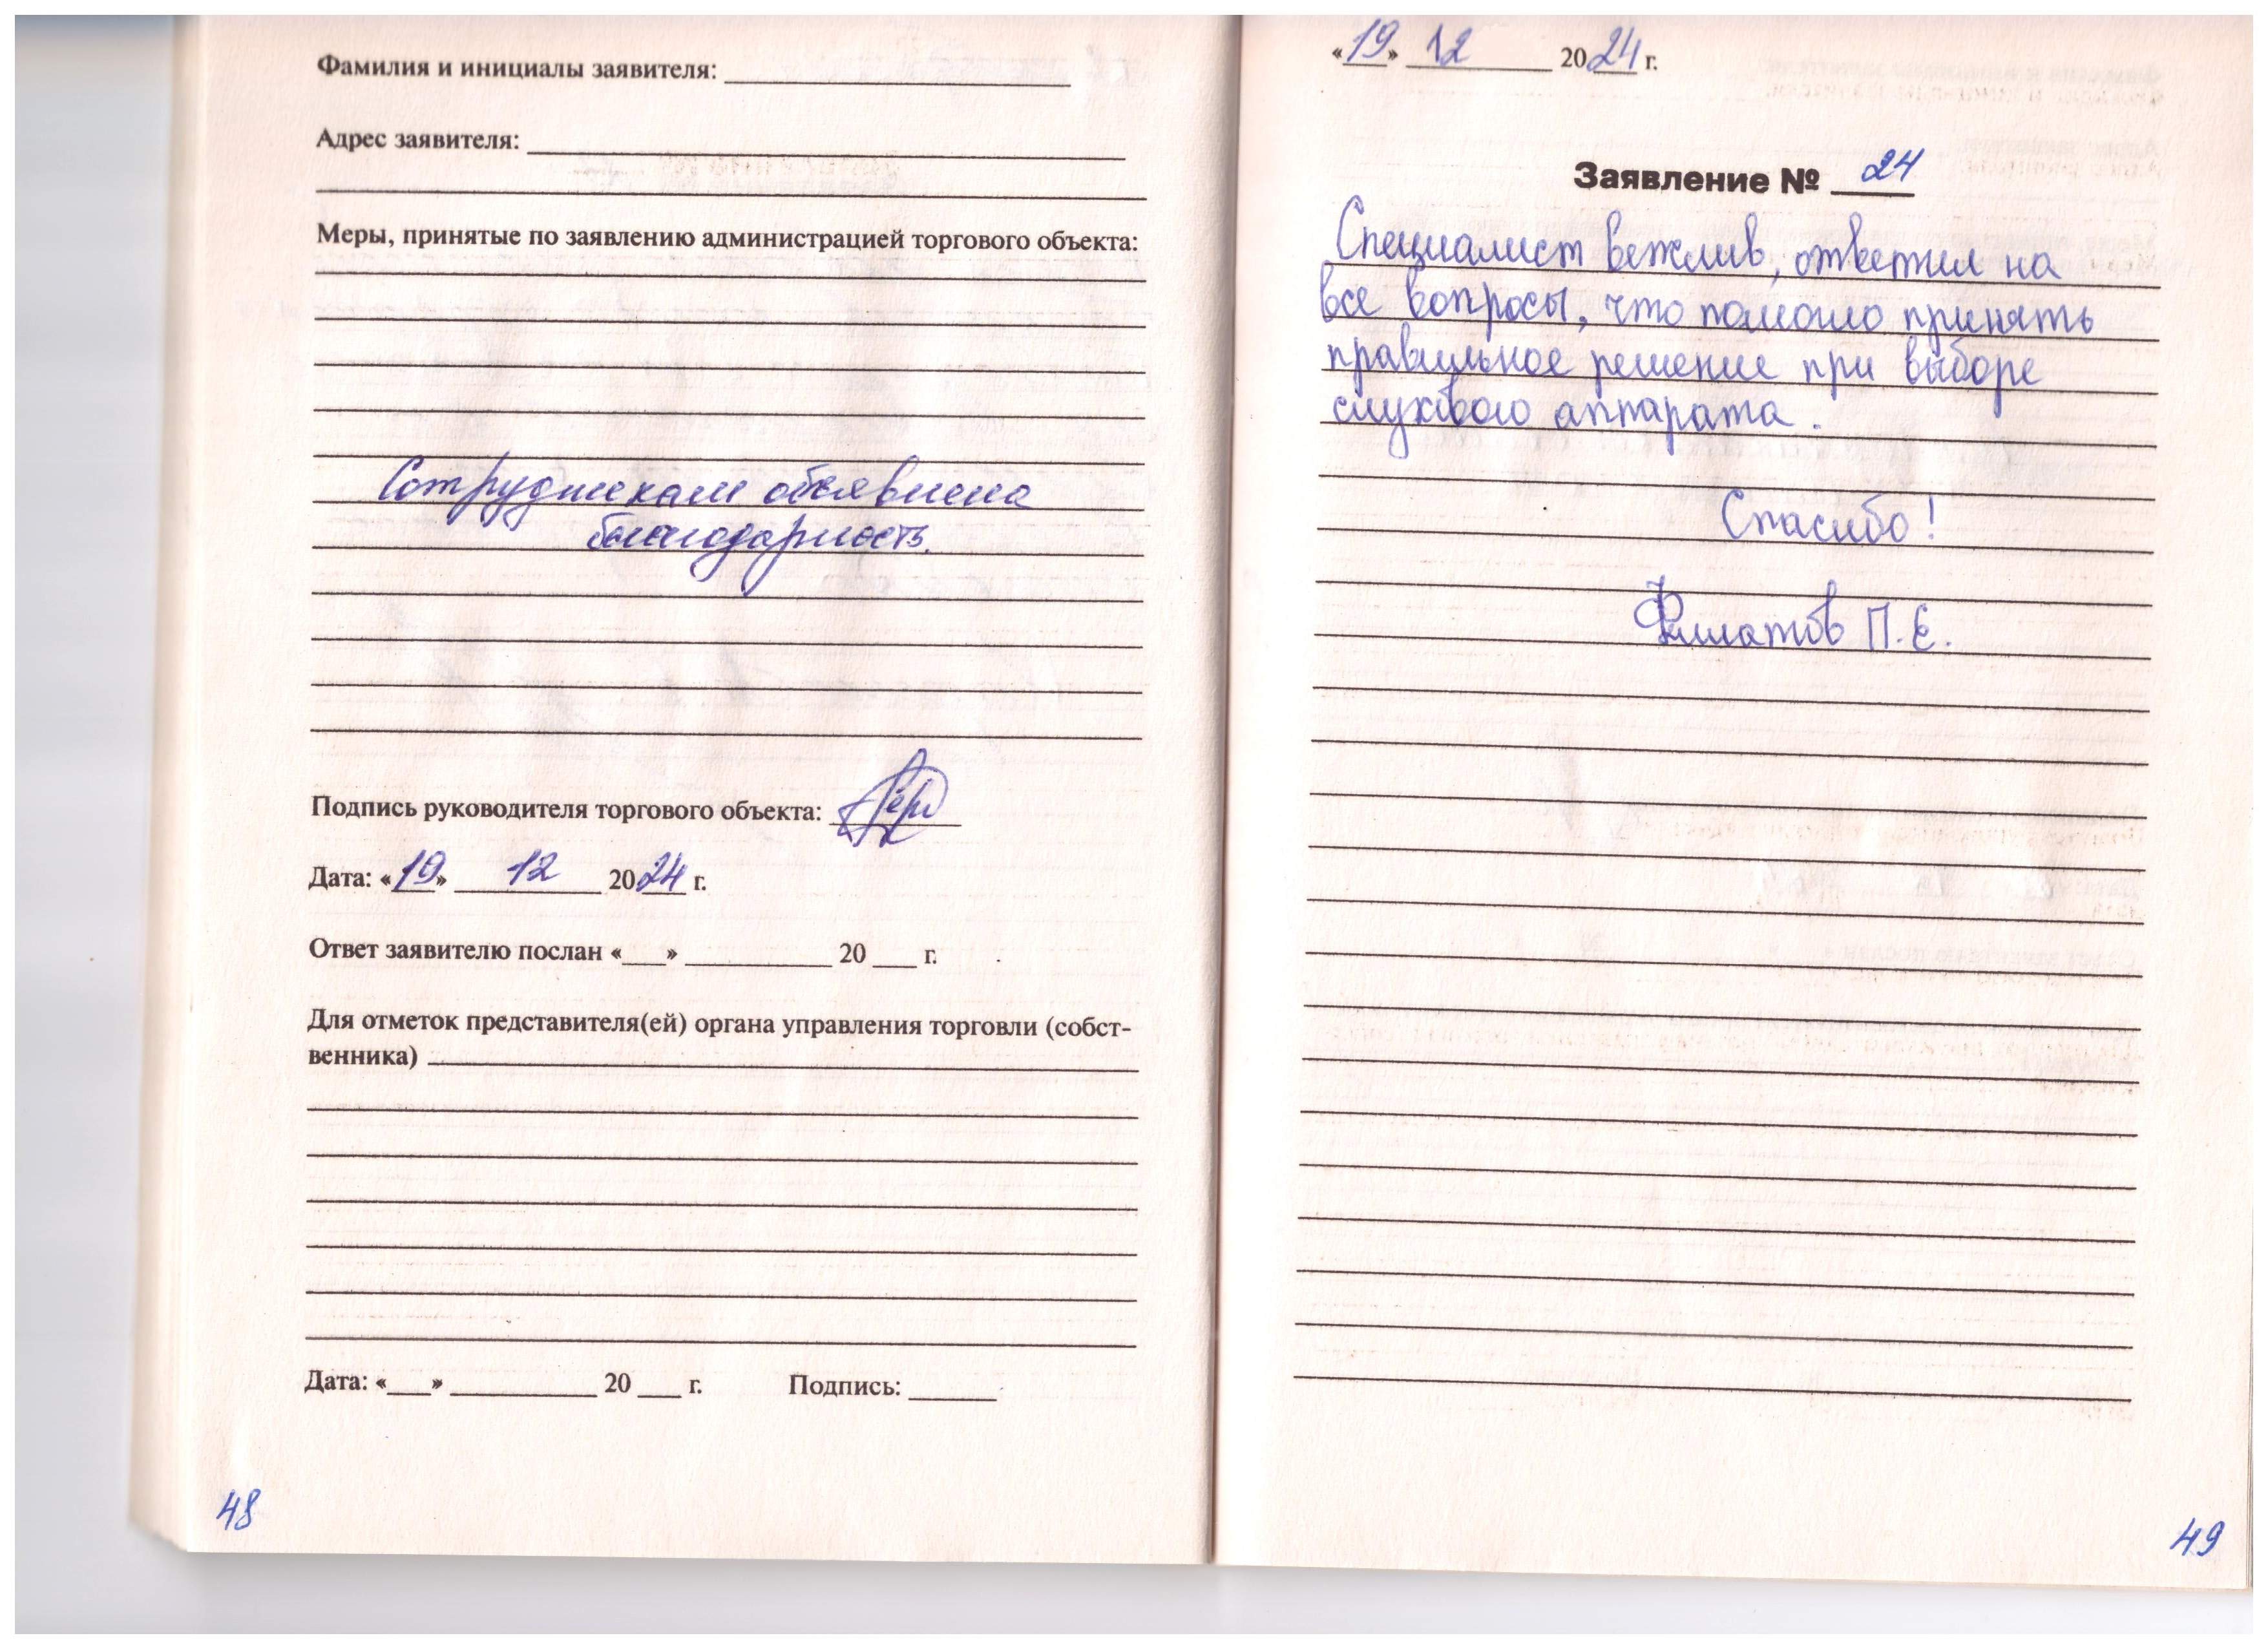 Фамилия и инициалы заявителя:
Адрес заявителя:
Меры, принятые по заявлению администрацией торгового объекта:
Сотрудникам объявлена
благодарность.
Подпись руководителя торгового объекта:
Дата: «19» 12 2024 г.
Ответ заявителю послан «___» 20 ___ г.
Для отметок представителя(ей) органа управления торговли (собст-
венника)
Дата: «___» 20 ___ г. Подпись:
48
«19» 12 2024 г.
Заявление № 24
Специалист вежлив, ответил на
все вопросы, что помогло принять
правильное решение при выборе
слухового аппарата.
Спасибо!
Филатов П.Е.
49